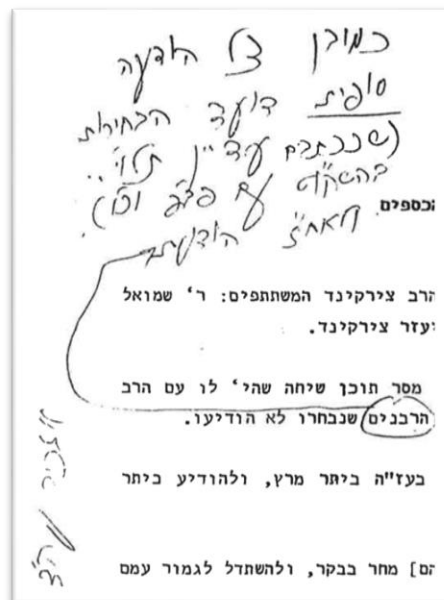 כמובן צ"ל הודעה
סופית דועד הבחירות
(שככתבם עדיין תלוי..
בהשקו"ט עם
ולאח"ז הודעת
הכספים.
הרב צירקינד המשתתפים: ר' שמואל
יעזר צירקינד.
מסר תוכן שיחה שהי' לו עם הרב
הרבנים שנבחרו לא הודיעו.
בעז"ה ביתר מרץ, ולהודיע ביתר
הם] מחר בבקר, ולהשתדל לגמור עמם